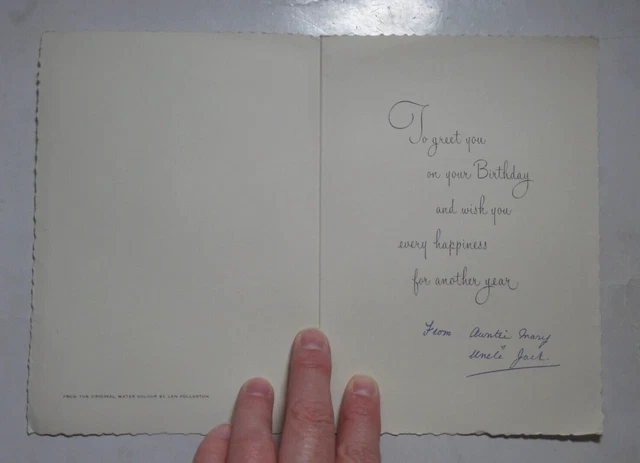 To greet you
on your Birthday
and wish you
every happiness
for another year
From Auntie Mary
& Uncle Jack.
FROM THE ORIGINAL WATER COLOUR BY LEN FULLERTON